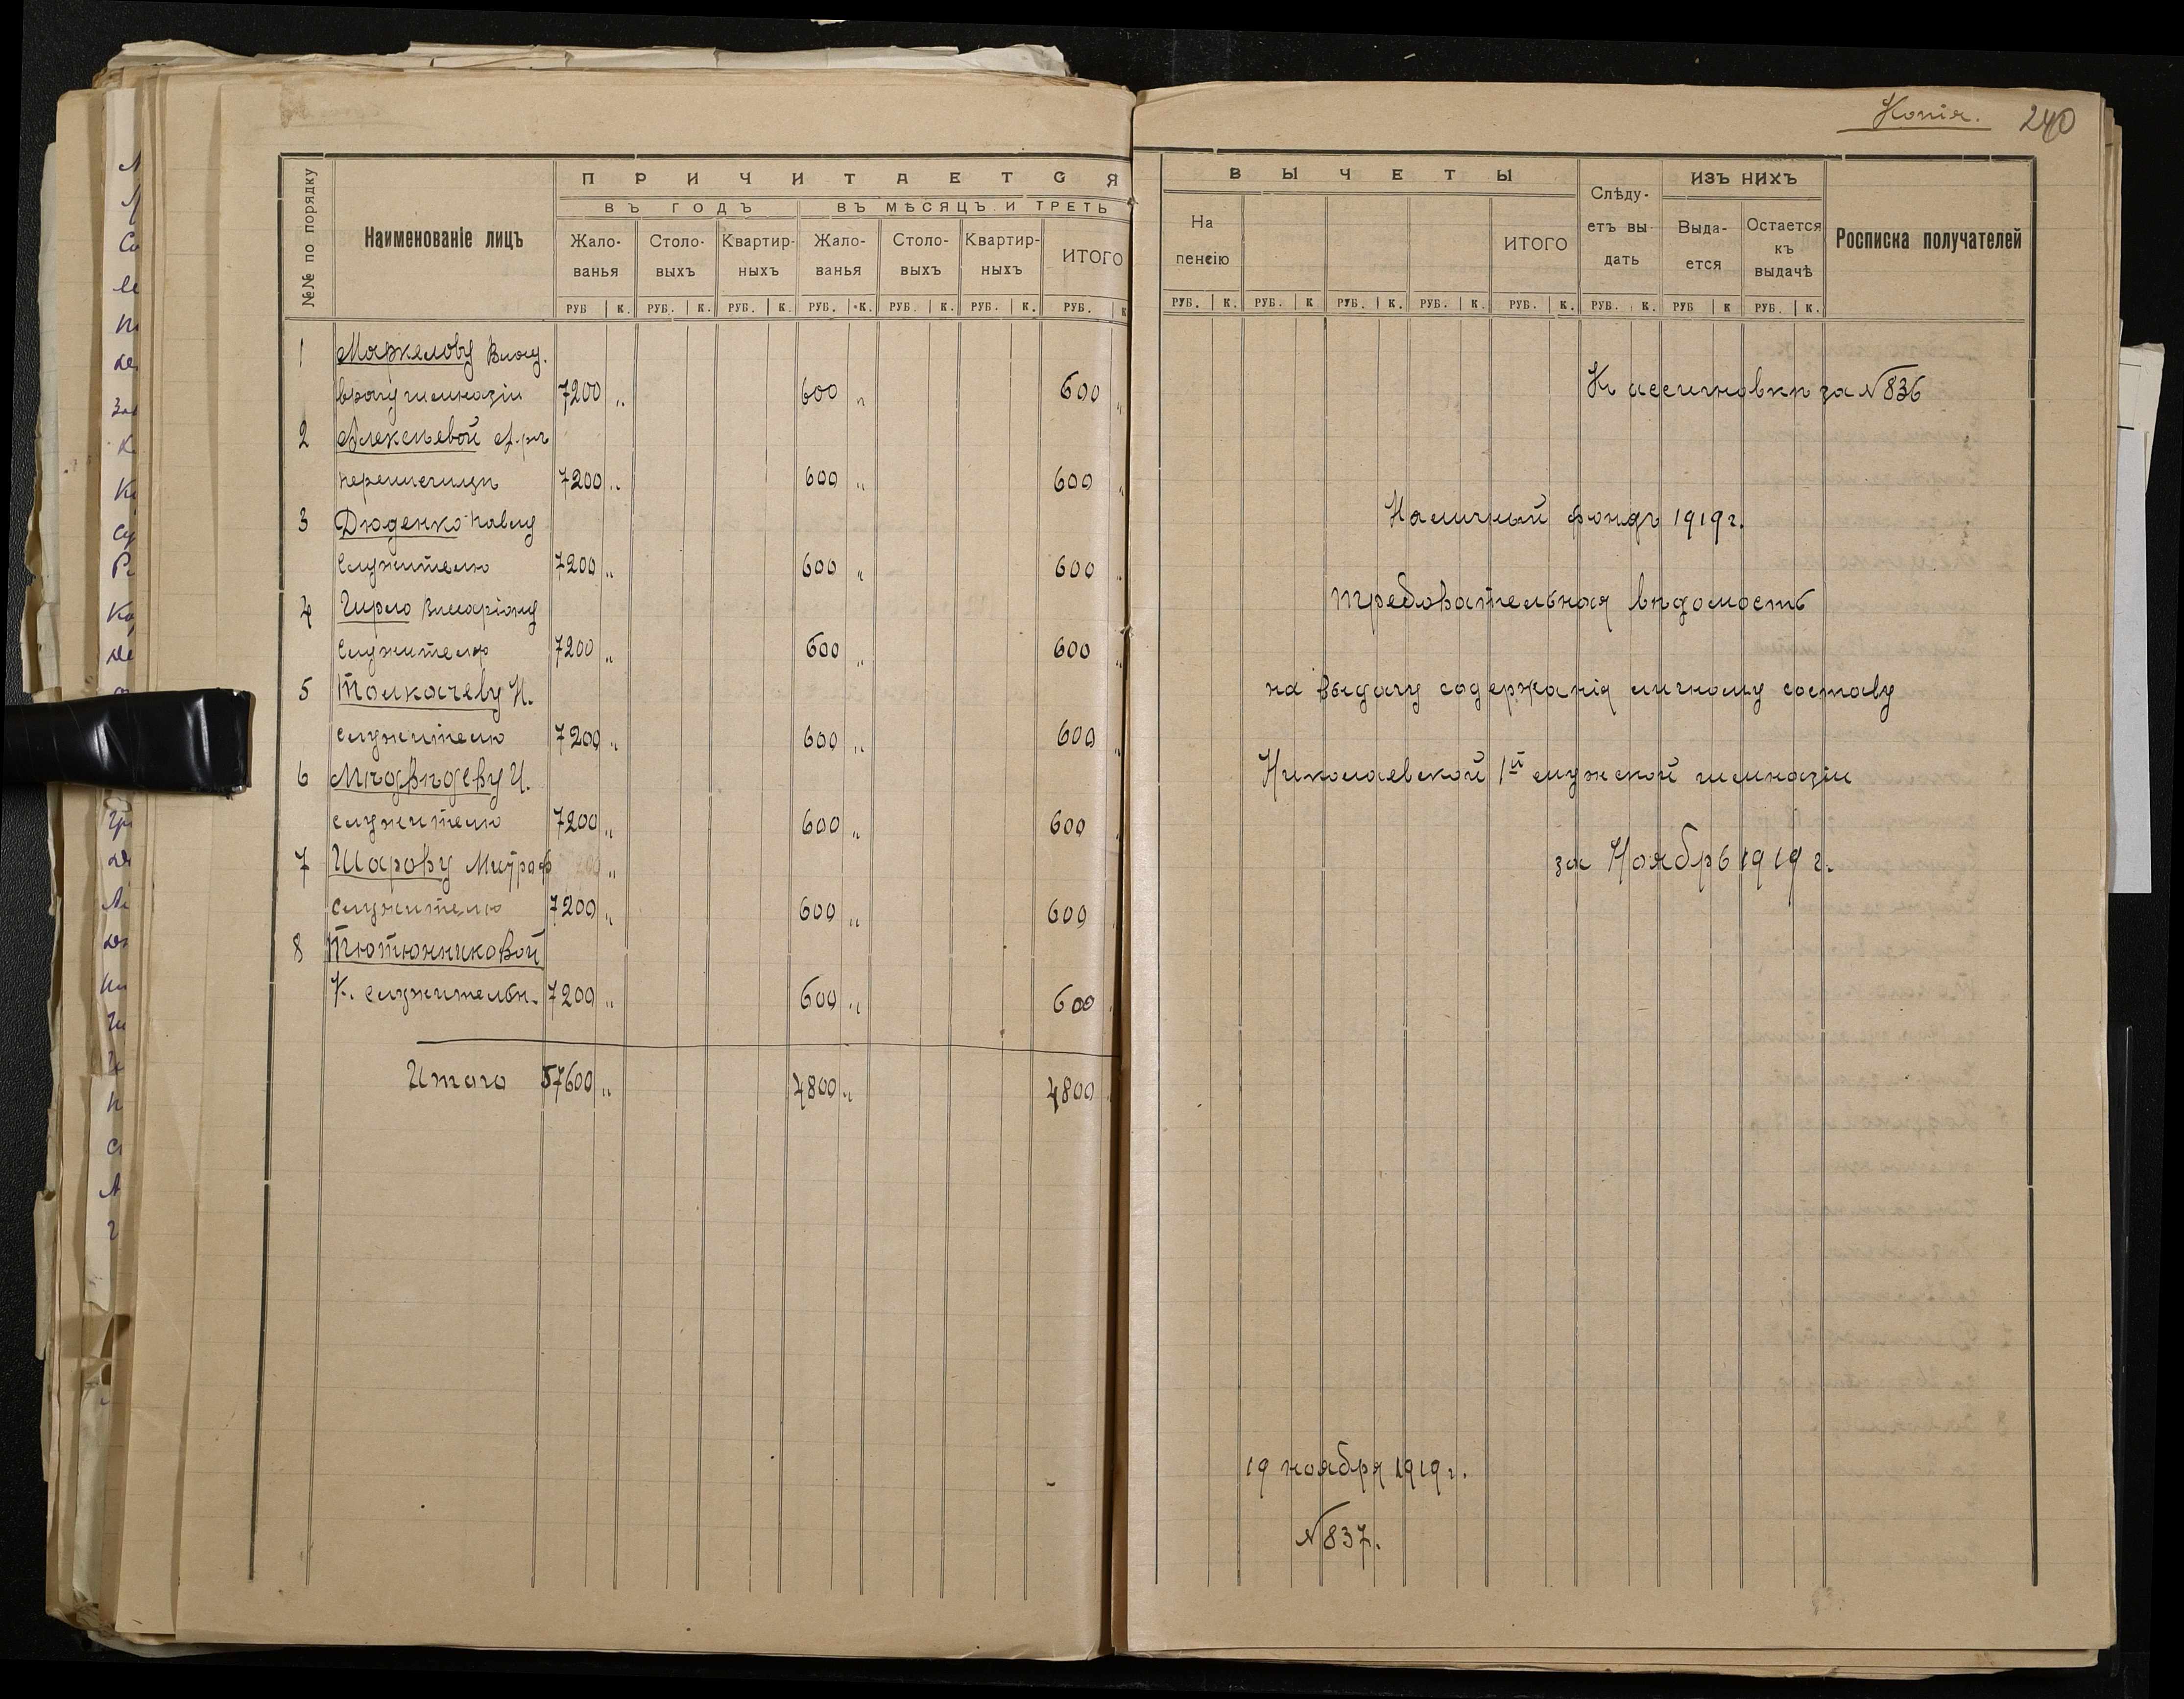 Копія. 240
№№ по порядку
Наименованіе лицъ
ПРИЧИТАЕТСЯ
ВЪ ГОДЪ
ВЪ МѢСЯЦЪ И ТРЕТЬ
Жало-
ванья
Столо-
выхъ
Квартир-
ныхъ
Жало-
ванья
Столо-
выхъ
Квартир-
ныхъ
ИТОГО
РУБ К. РУБ. К. РУБ. К. РУБ. К. РУБ. К. РУБ. К. РУБ. К
1 Маркелову Влад.
врачу гимназіи 7200 „ 600 „ 600 „
2 Алексѣевой
переписчицѣ 7200 „ 600 „ 600 „
3 Дюденко Павлу
служителю 7200 „ 600 „ 600 „
4 Гирло Виссаріону
служителю 7200 „ 600 „ 600 „
5 Толкачеву И.
служителю 7200 „ 600 „ 600 „
6 Мѣдвѣдеву И.
служителю 7200 „ 600 „ 600
7 Шарову Митроф „
служителю 7200 „ 600 „ 600
8 Тютюнниковой
К. служительн. 7200 „ 600 „ 600
Итого 57600 „ 4800 „ 4800
ВЫЧЕТЫ
На
пенсію
ИТОГО
Слѣду-
етъ вы-
дать
ИЗЪ НИХЪ
Выда-
ется
Остается
къ
выдачѣ
Росписка получателей
РУБ. К. РУБ. К РУБ. К. РУБ. К. РУБ. К. РУБ. К. РУБ К РУБ. К.
Къ ассигновкѣ за № 836
Наличный фондъ 1919 г.
требовательная вѣдомость
на выдачу содержанія личному составу
Николаевской 1й мужской гимназіи
за Ноябрь 1919 г.
19 ноября 1919 г.
№ 837.